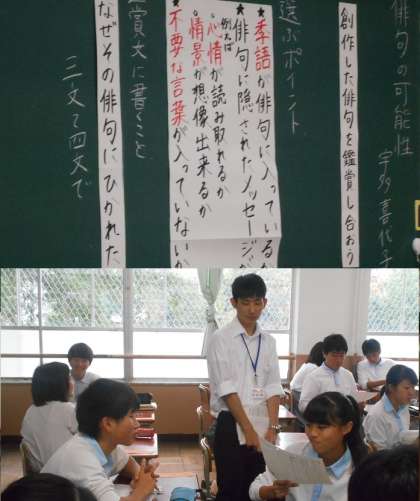 俳句の可能性
宇多喜代子
創作した俳句を鑑賞し合おう
選ぶポイント
★季語が俳句に入っているか
★俳句に隠されたメッセージ
例えば
心情が読み取れるか
情景が想像出来るか
★不要な言葉が入っていないか
鑑賞文に書くこと
なぜその俳句にひかれた
三文〜四文で